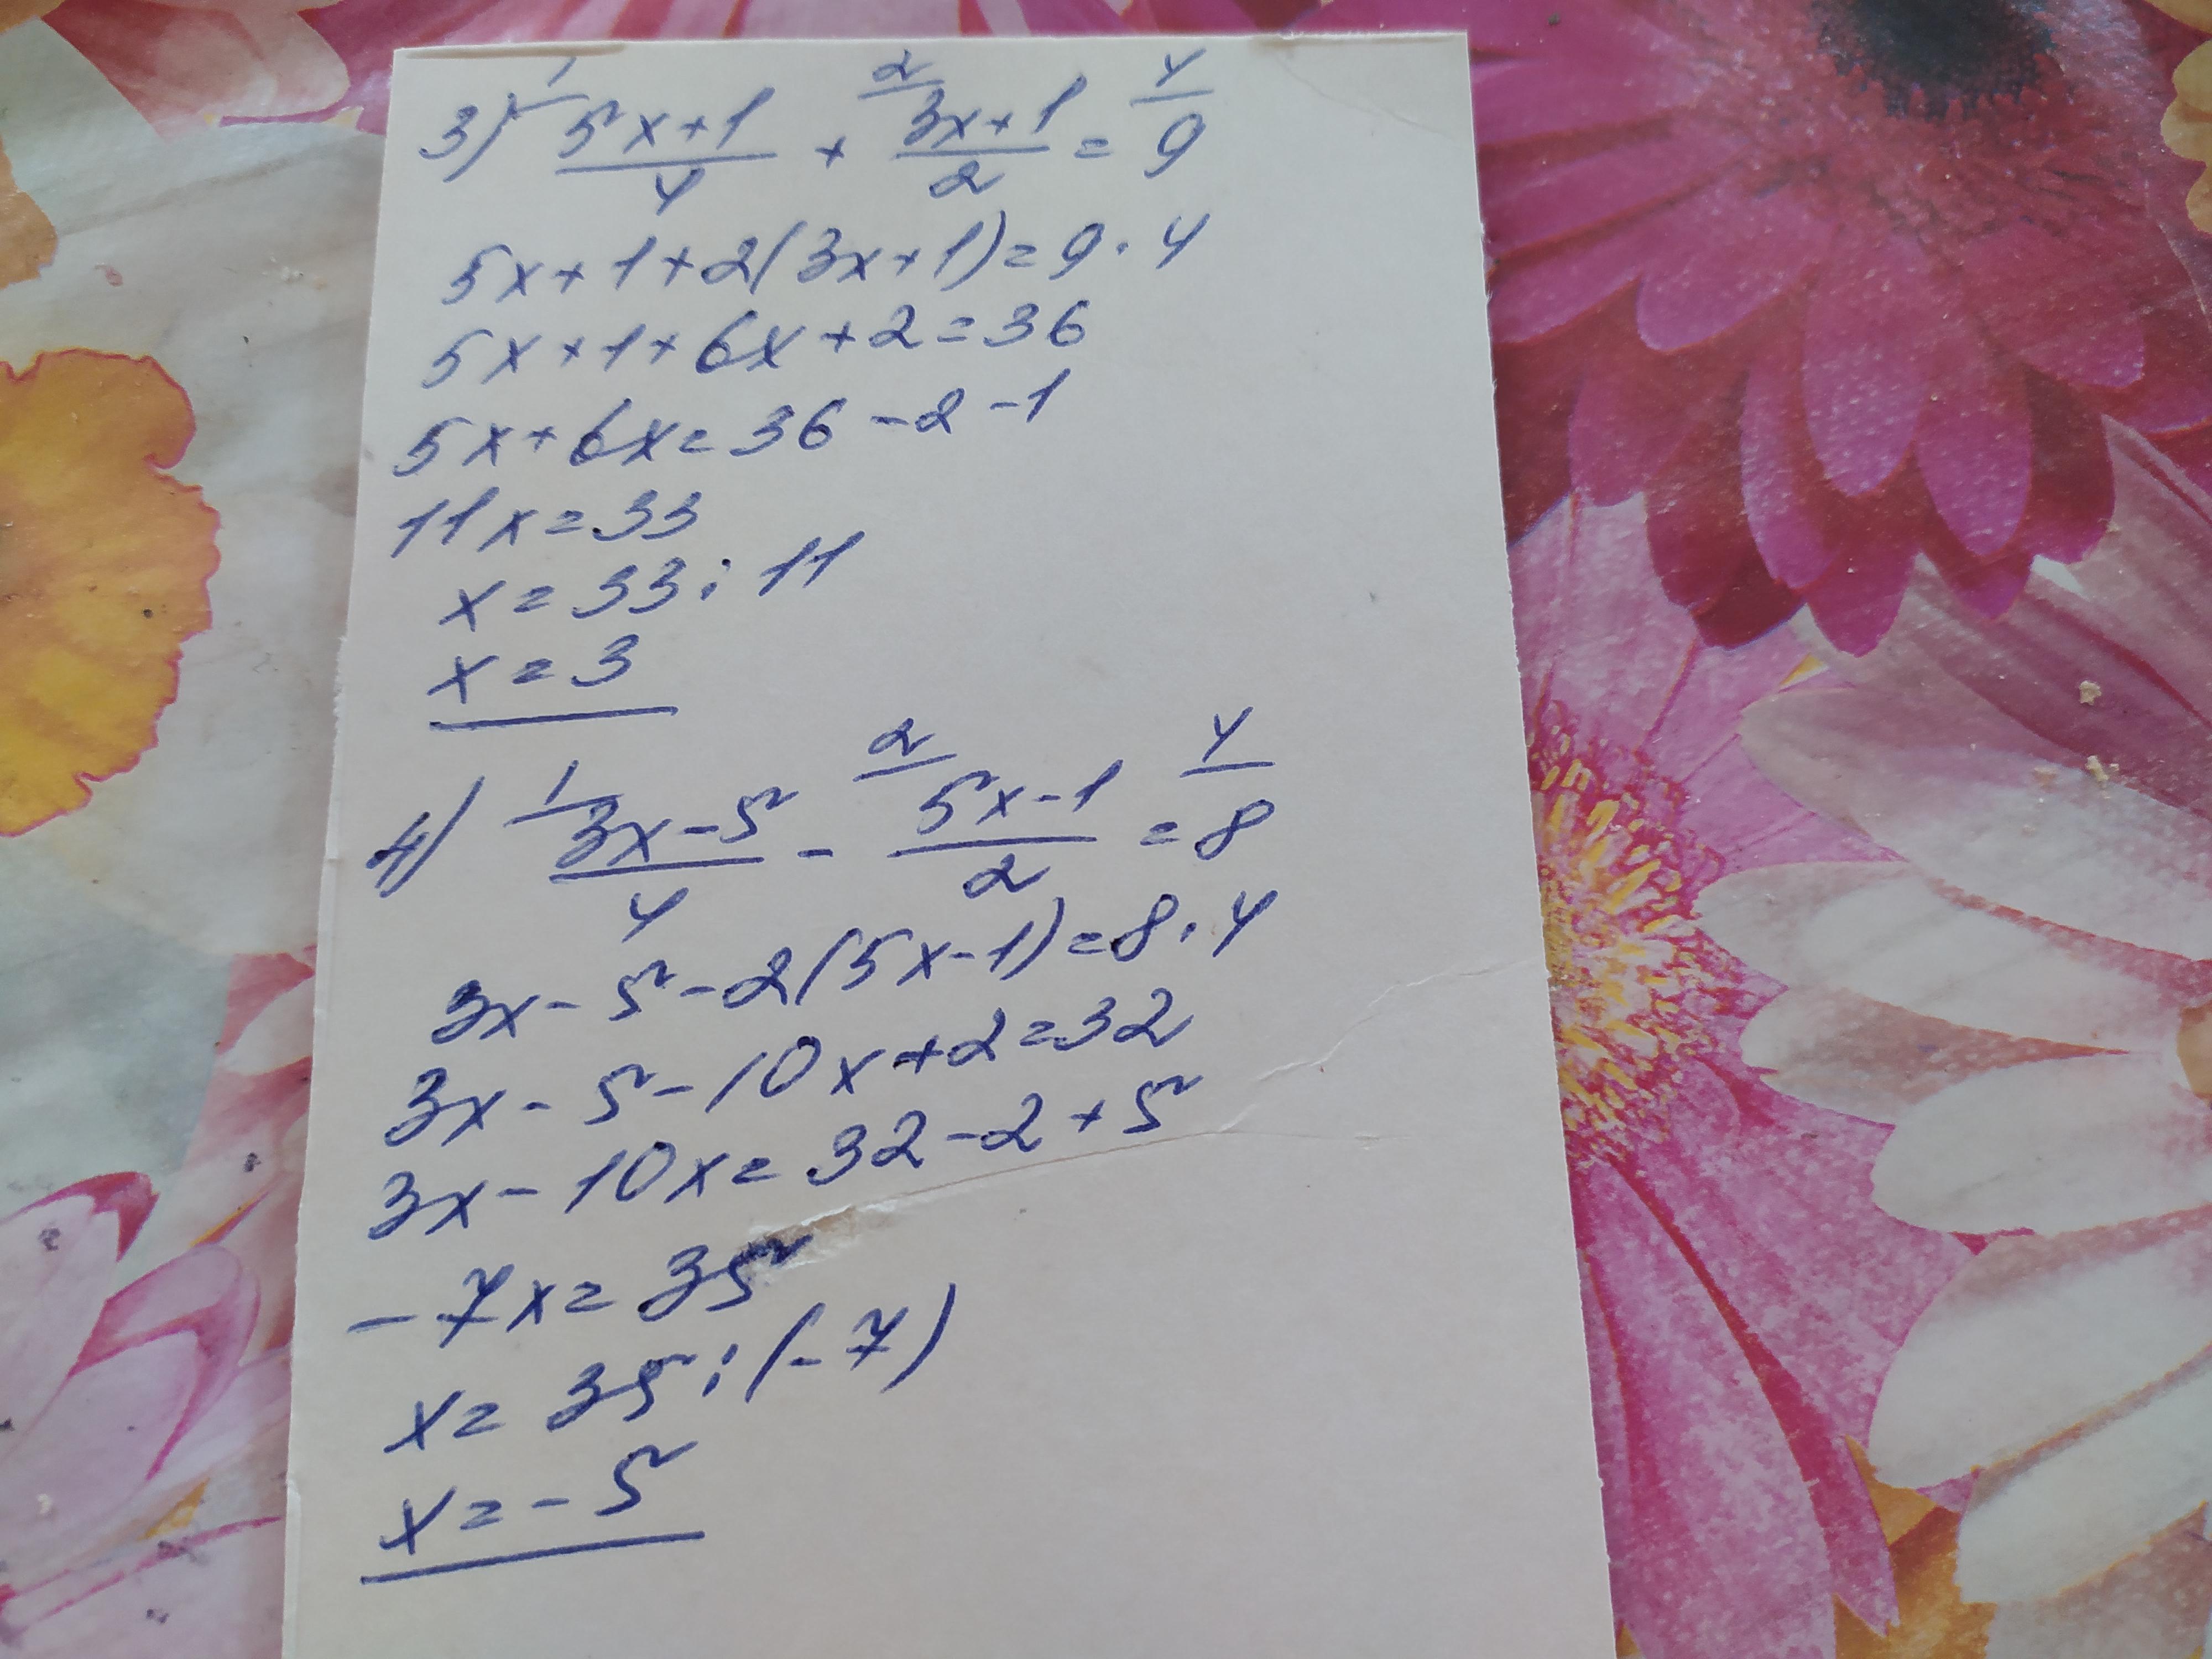 1 2 4
3) 5x+1/4 + 3x+1/2 = 9
5x+1+2(3x+1)=9·4
5x+1+6x+2=36
5x+6x=36-2-1
11x=33
x=33:11
x=3
1 2 4
4) 3x-5/4 - 5x-1/2 =8
3x-5-2(5x-1)=8·4
3x-5-10x+2=32
3x-10x=32-2+5
-7x=35
x=35:(-7)
x=-5